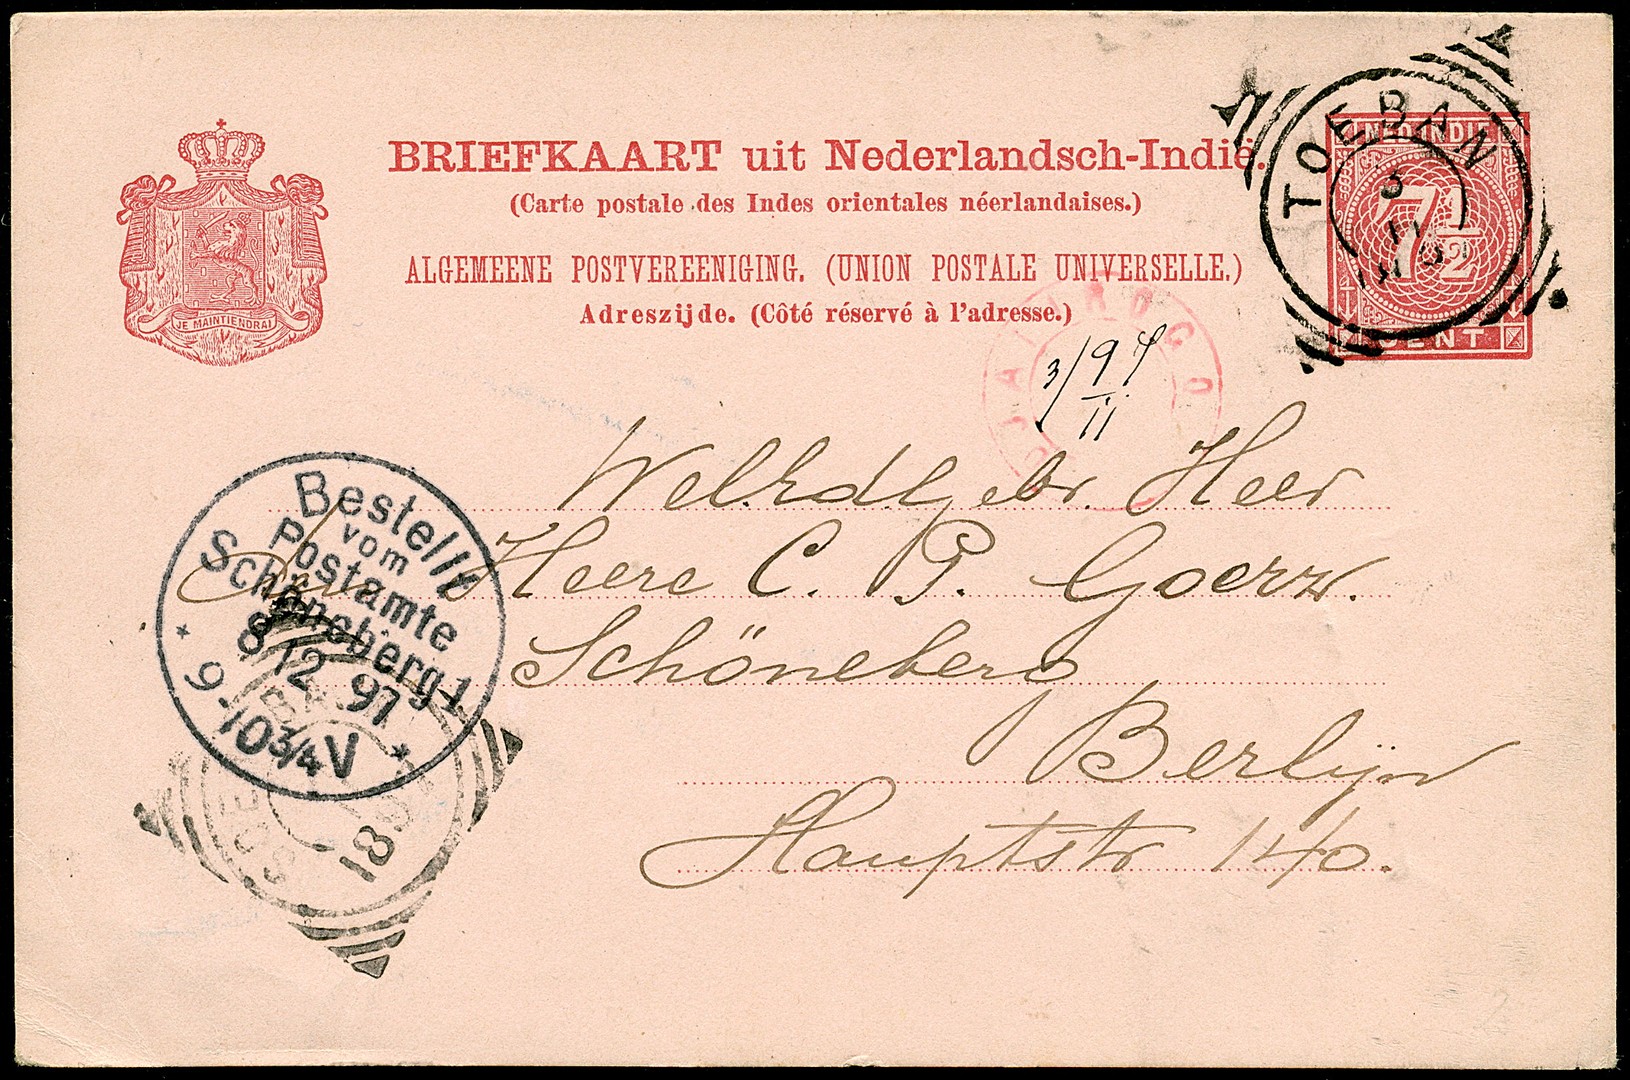 BRIEFKAART uit Nederlandsch-Indië.
(Carte postale des Indes orientales néerlandaises.)
ALGEMEENE POSTVEREENIGING. (UNION POSTALE UNIVERSELLE.)
Adreszijde. (Côté réservé à l'adresse.)
JE MAINTIENDRAI
NED-INDIE
7½
CENT
TOEBAN
3
11
3/ 9
11
WelEdlgebr Heer
Heere C. P. Goerz.
Schöneberg
Berlijn
Hauptstr 140.
Bestellt
vom
Postamte
Schöneberg 1
8 12 97
9-10¾V